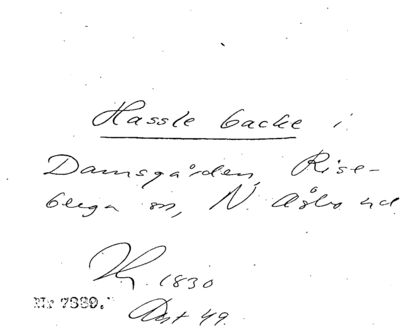 Hassle backe i
Damsgården, Rise-
berga sn, N. Åsbo hd.
1830
Nr 7889.
Avst 49.